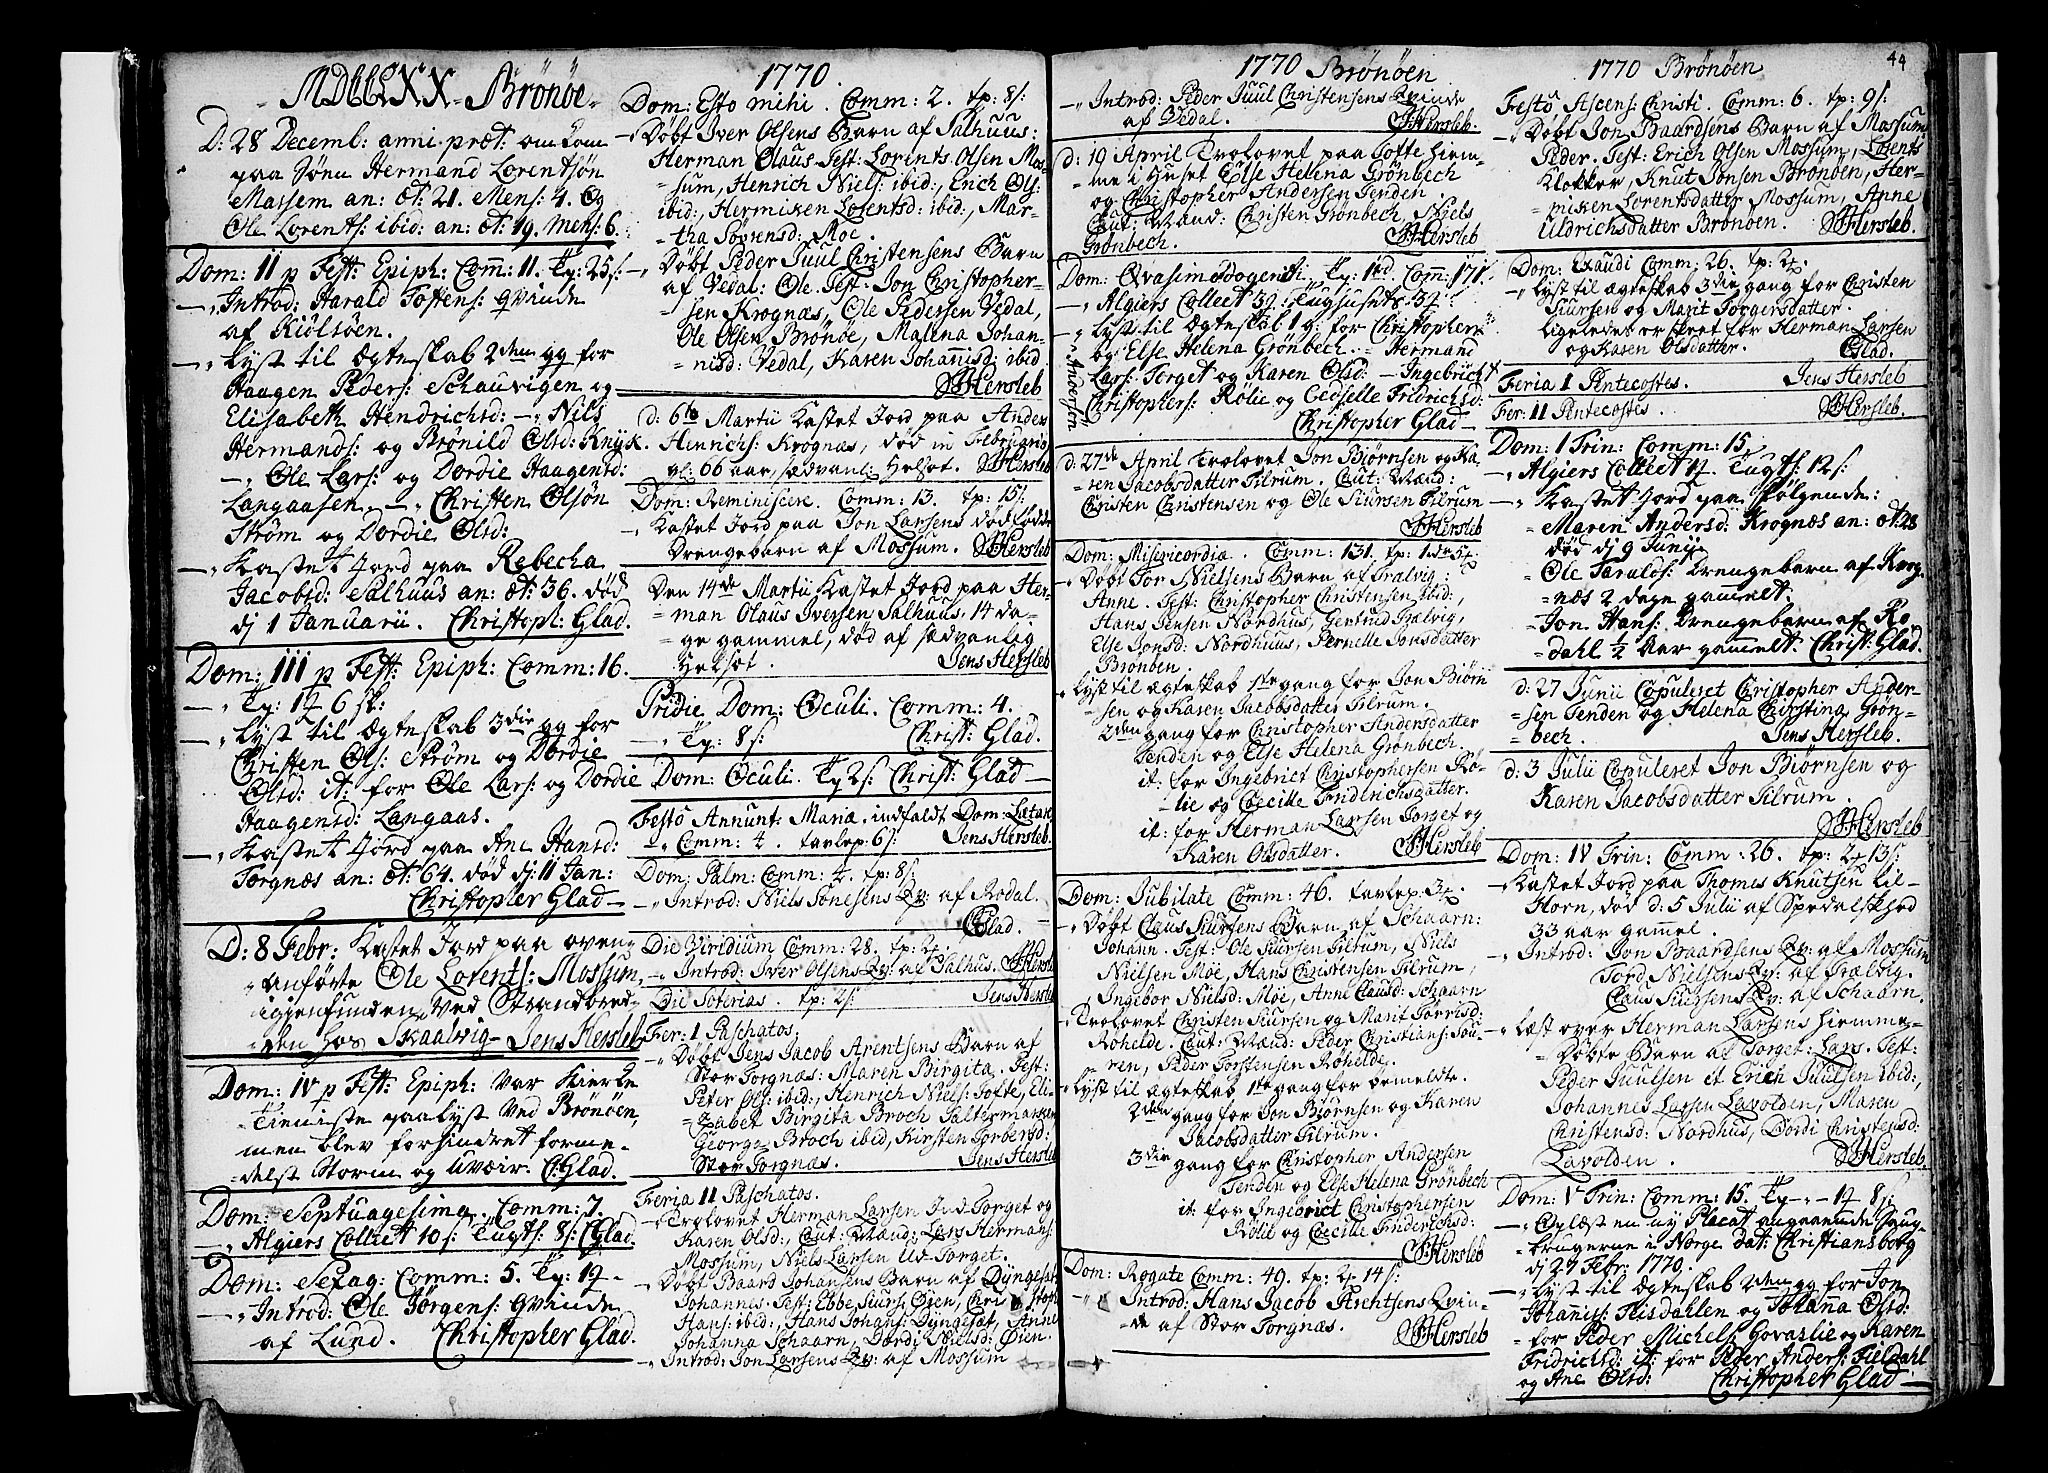 MDCCLXX - Brönöe -
D: 28 Decemb: anni præt: omkom
paa Söen Hermand Lorentsön
Massem an: æt: 21. Mens: 4. og
Ole Lorents: ibid: an: æt: 19. mens: 6.
Dom: II p Fest: Epiph: Com: 11. Tp: 25 s:
Introd: Harald Tostens: qvinde
af Kiölsöen.
Lyst til Ægteskab 2den gg for
Haagen Peders: Schauvigen og
Elisabeth Hendrichsd: Nils
Hermands: og Brönild Olsd: Knyk.
Ole Lars: og Dordie Haagensd:
Langaasen. Christen Olsön
Ström og Dordie Olsd:
Kastet Jord paa Rebecha
Jacobsd: Salhuus an: æt: 36. död
dj 1 Januarii. Christoph: Glad.
Dom: III p Fest: Epiph: Comm: 16.
Tp: 6 sk:
Lyst til Ægteskab 3die gg for
Christen Ols: Ström og Dordie
Olsd: it: for Ole Lars: og Dordie
Haagensd: Langaas.
Kastet Jord paa Ane Hansd:
Torgnæs an: æt: 64. död dj: 11 Jan:
Christopher Glad
D: 8 Febr: Kastet Jord paa oven-
anförte Ole Lorents: Mossum,
igjenfunden ved Strandbred-
den hos Skaalvig. Jens Hersleb
Dom: IV p Fest: Epiph: var Kierke
Tieniste paalyst ved Brönöen,
men blev forhindret forme-
delst Storm og Uveir. C: Glad.
Dom: Septuagesima. Comm: 7.
Algiers Collect 10 s: Tugts: 8 s: CGlad
Dom: Sexag: Comm: 5. Tp:
Introd: Ole Jörgens: qvinde
af Lund. Christopher Glad.
1770.
Dom: Esto mihi. Comm: 2. tp: 8 s:
Döbt Iver Olsens Barn af Salhuus:
Herman Olaus. Test: Lorents Olsen Mos-
sum, Henrich Niels: ibid:, Erich Ols:
ibid:, Hermiken Lorentsd: ibid:, Mar-
tha Sörensd: Moe.
Döbt Peder Juul Christensens Barn
af Vedal: Ole. Test: Jon Christopher-
sen Krognæs, Ole Pedersen Vedal,
Ole Olsen Brönöe, Malena Johan-
nisd: Vedal, Karen Johanisd: ibid
JHersleb
d: 6te Martii Kastet Jord paa Anders
Hinrichs: Krognæs, död in Februario,
66 aar, sædvanl: Helsot. JHersleb
Dom: Reminiscere. Comm: 13. tp: 15 s:
Kastet Jord paa Jon Larsens dödfödde
Drengebarn af Mossum. JHersleb
Den 14de Martii Kastet Jord paa Her-
man Olaus Iversen Salhuus, 14 da-
ge gammel, död af sædvanlig
Helsot. Jens Hersleb
Pridie Dom: Oculi. Comm: 4.
Tp: 8 s: Christ: Glad.
Dom: Oculi. Tp 2 s: Christ: Glad
Festo Annunt: Mariæ indfaldt Dom: Lætare
Comm: 4. tavlep: 6 s: Jens Hersleb.
Dom: Palm: Comm: 4. tp: 8 s:
Introd: Niels Sonesens Qv: af Rodal.
CGlad.
Die Viridium Comm: 28. tp:
Introd: Iver Olsens Qv: af Salhus. JHersleb
Die Soterias. tp: 2 s: Jens Hersleb
Fer: 1 Paschatos.
Döbt Jens Jacob Arentsens Barn af
Stor Torgnæs: Maren Birgita. Test:
Peter Ols: ibid:, Henrich Niels: Tofte, Eli-
zabet Birgita Broch
George Broch ibid, Kirsten Torbersd:
Stor Torgnæs. Jens Hersleb
Feria II Paschatos.
Trolovet Herman Larsen Ind-Torget og
Karen Olsd: Caut: Mænd: Lars Hermans:
Mossum, Niels Larsen Ud-Torget.
Döbt Baard Johansens Barn af Dyngesæt
Johannes. Test: Ebbe Siurs: Öien,
Hans: ibid:, Hans Johans: Dyngesæt, Anne
Johanna Schaarn, Dordi Nielsd: Öien.
Introd: Jon Larsens Qv: af Mossum
1770 Brönöen
Introd: Peder Juul Christensens Qvinde
af Vedal. JHersleb.
d: 19 April Trolovet paa Tofte hiem-
me i Huset Else Helena Grönbech
og Christopher Andersen Tenden.
Caut: Mænd: Christen Grönbech, Niels
Grönbech. JHersleb
Dom: Qvasimodogeniti. Tp: Com: 171.
Algiers Collect Tugthusets
Lyst til Ægteskab 1 g: for Christopher
Andersen
og Else Helena Grönbech. Hermand
Lars: Torget og Karen Olsd: Ingebricht
Christophers: Rölie og Cedselle Fridrichsd:
Christopher Glad
d: 27de April Trolovet Jon Biörnsen og Ka-
ren Jacobsdatter Tilrum. Caut: Mænd:
Christen Christensen og Ole Siursen Tilrum
JHersleb
Dom: Misericordia. Comm: 131. tp:
Döbt Tor Nielsens Barn af Trælvig:
Anne. Test: Christopher Christensen ibid:,
Hans Jensen Nordhus, Gertrud Trælvig,
Else Jonsd: Nordhuus, Pernelle Jonsdatter
Brönöen.
Lyst til ægteskab 1ste gang for Jon Biörn
sen og Karen Jacobsdatter Tilrum.
2den gang for Christopher Andersdatter
Tenden og Else Helena Grönbech.
it: for Ingebrict Christophersen Rö-
lie og Cecille Fridrichsdatter.
it: for Herman Larsen Torget og
Karen Olsdatter. JHersleb
Dom: Jubilate Comm: 46. tavlep:
Döbt Claus Siursens Barn af Schaarn:
Johann. Test: Ole Siursen Tilrum, Niels
Nielsen Möe, Hans Christensen Tilrum,
Ingebor Nielsd: Möe, Anne Clausd: Schaarn
Trolovet Christen Siursen og Marit Torrisd:
Röhelde. Caut: Mænd: Peder Christians: Sou-
ren, Peder Torstensen Röhelde.
Lyst til ægteskab 1ste gang for bemeldte.
2den gang for Jon Biörnsen og Karen
Jacobsdatter Tilrum.
3die gang for Christopher Andersen
Tenden og Else Helena Grönbech
it: for Ingebrict Christophersen
Rölie og Cecille Friderichsd:
JHersleb
Dom: Rogate Comm: 49. tp: 14 s:
Introd: Hans Jacob Arentsens Qvin-
de af Stor Torgnæs. JHersleb
1770 Brönöen 44
Festo Ascens: Christi. Comm: 6. tp: 9 s:
Döbt Jon Baardsens Barn af Mossum
Peder. Test: Erich Olsen Mossum, Lorents
Klokker, Knut Jonsen Brönöen, Her-
miken Lorentsdatter Mossum, Anne
Uldrichsdatter Brönöen. JHersleb.
Dom: Exaudi Comm: 26. tp:
Lyst til ægteskab 3die gang for Christen
Siursen og Marit Torgersdatter.
ligeledes for Herman Larsen
og Karen Olsdatter. CGlad.
Feria 1 Pentecostes. Jens Hersleb
Fer: II Pentecostes. JHersleb.
Dom: 1 Trin: Comm: 15.
Algiers Collect Tugts: 12 s:
Kastet Jord paa fölgende:
Maren Andersd: Krognæs an: æt: 28
död dj 9 Junij.
Ole Taralds: Drengebarn af Krog-
næs 2 dage gammelt.
Jon Hans: Drengebarn af Ro-
dahl 1/2 Aar gammelt. Christ: Glad.
d: 27 Junii Copuleret Christopher Ander-
sen Tenden og Helena Christina Grön-
bech. Jens Hersleb.
d: 3 Julii Copuleret Jon Biörnsen og
Karen Jacobsdatter Tilrum
JHersleb
Dom: IV Trin: Comm: 26. tp: 13 s:
Kastet Jord paa Thomes Knutsen Lil-
Horn, död d: 5 Julii af Spedalskhed
33 aar gammel.
Introd: Jon Baardsens Qv: af Mossum
Tord Nielsens Qv: af Trælvig.
Claus Siursens Qv: af Schaarn.
Læst over Herman Larsens hiemme-
döbte Barn af Torget: Lars. Test:
Peder Juulsen et Erich Juulsen ibid:,
Johannes Larsen Lavolden, Maren
Christensd: Nordhus, Dordi Christensd:
Lavolden. JHersleb.
Dom: V Trin: Comm: 15. Tp 8 s:
Oplæst en ny Placat angaaende Saug-
brugerne i Norge dat: Christiansborg
dj 27 Febr: 1770.
Lyst til Ægteskab 2den gg for Jon
Johannis: Teisdahlen og Johanna Olsd:
for Peder Michels: Govaslie og Karen
Fridrichsd: it: for Peder Anders: Fieldahl
og Ane Olsd: Christopher Glad